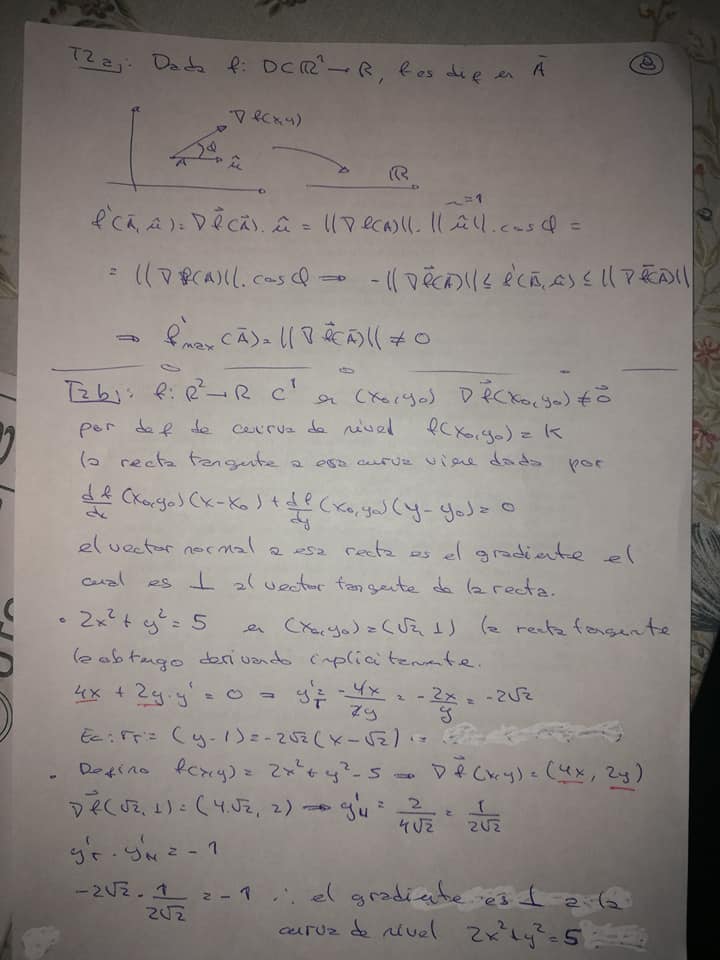 T2a): Dada f: D⊂R²→R, f es dif en Ā
8
∇f(x,y)
φ
A
û
R
f'(Ā,û)=∇f(Ā).û = ||∇f(A)||.||û||.cosφ =
=1
= ||∇f(A)||.cosφ ⇒ -||∇f(Ā)||≤ f'(Ā,û) ≤ ||∇f(Ā)||
⇒ f'max(Ā)=||∇f(Ā)|| ≠ 0
T2b): f: R²→R C¹ en (x₀,y₀) ∇f(x₀,y₀)≠0
por def de curva de nivel f(x₀,y₀)=K
la recta tangente a esa curva viene dada por
df/dx (x₀,y₀)(x-x₀)+df/dy (x₀,y₀)(y-y₀)=0
el vector normal a esa recta es el gradiente el
cual es ⊥ al vector tangente de la recta.
• 2x²+y²=5 en (x₀,y₀)=(√2,1) la recta tangente
la obtengo derivando implicitamente.
4x + 2y.y' = 0 ⇒ y'T= -4x/2y = -2x/y = -2√2
Ec: rT= (y-1)=-2√2(x-√2)
• Defino f(x,y)= 2x²+y²-5 ⇒ ∇f(x,y)=(4x, 2y)
∇f(√2,1)=(4.√2, 2) ⇒ y'N= 2/4√2 = 1/2√2
y'T . y'N = -1
-2√2 . 1/2√2 = -1 ∴ el gradiente es ⊥ a la
curva de nivel 2x²+y²=5